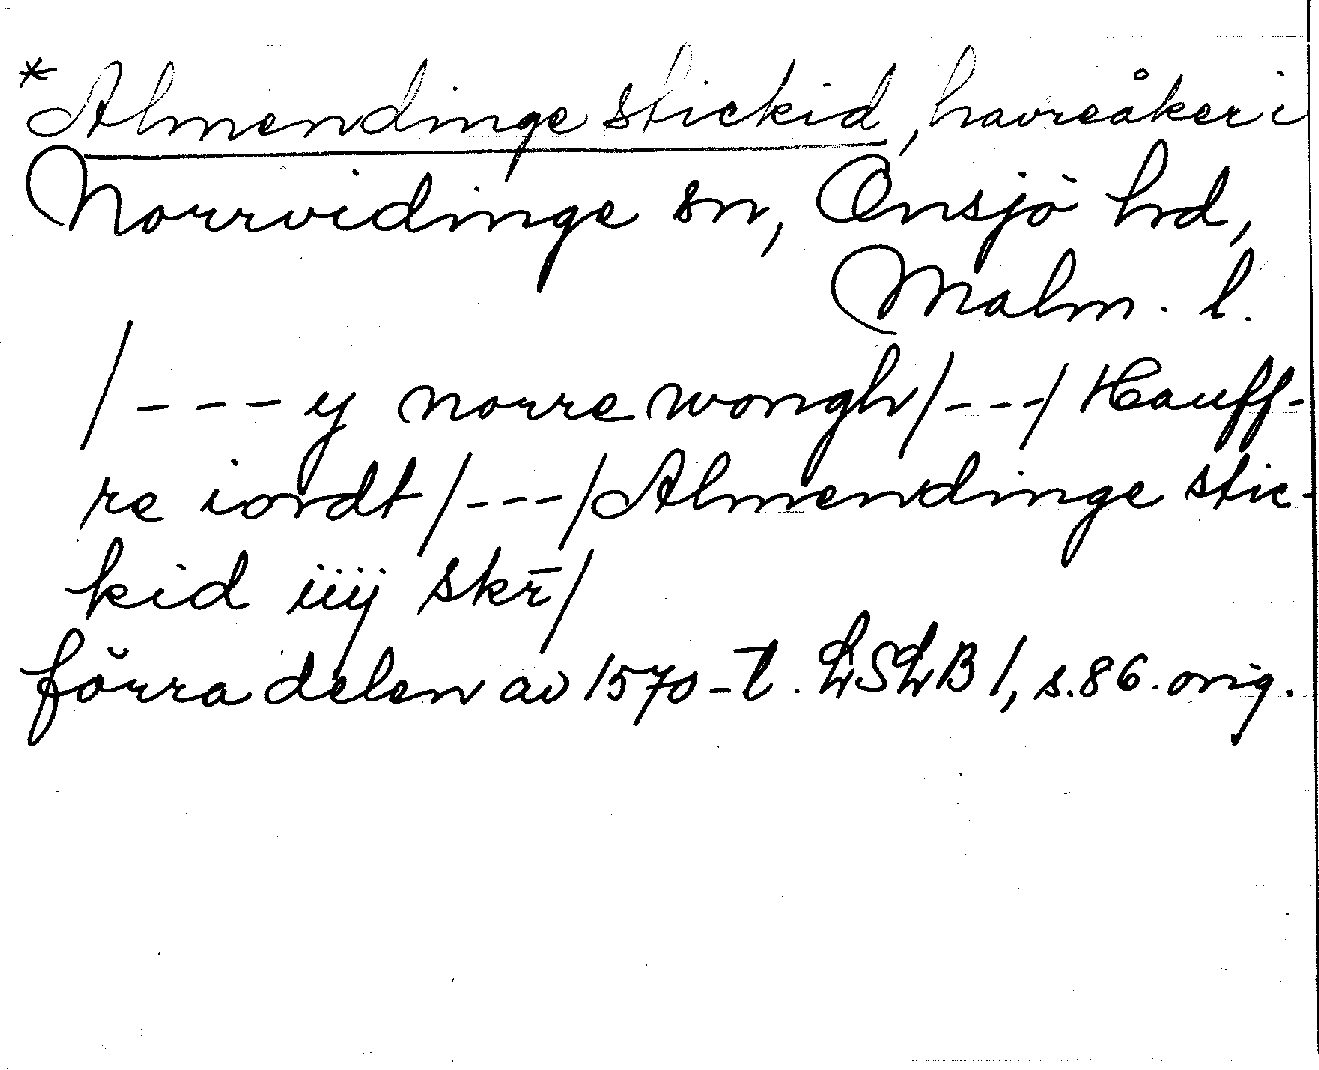 *Almendinge stickid, havreåker i
Norrvidinge sn, Onsjö hd,
Malm. l.
/---y norre wongh/---/Hauff-
re iordt/---/Almendinge stic-
kid iiij skr̄/
förra delen av 1570-t. LSLB 1, s.86. orig.